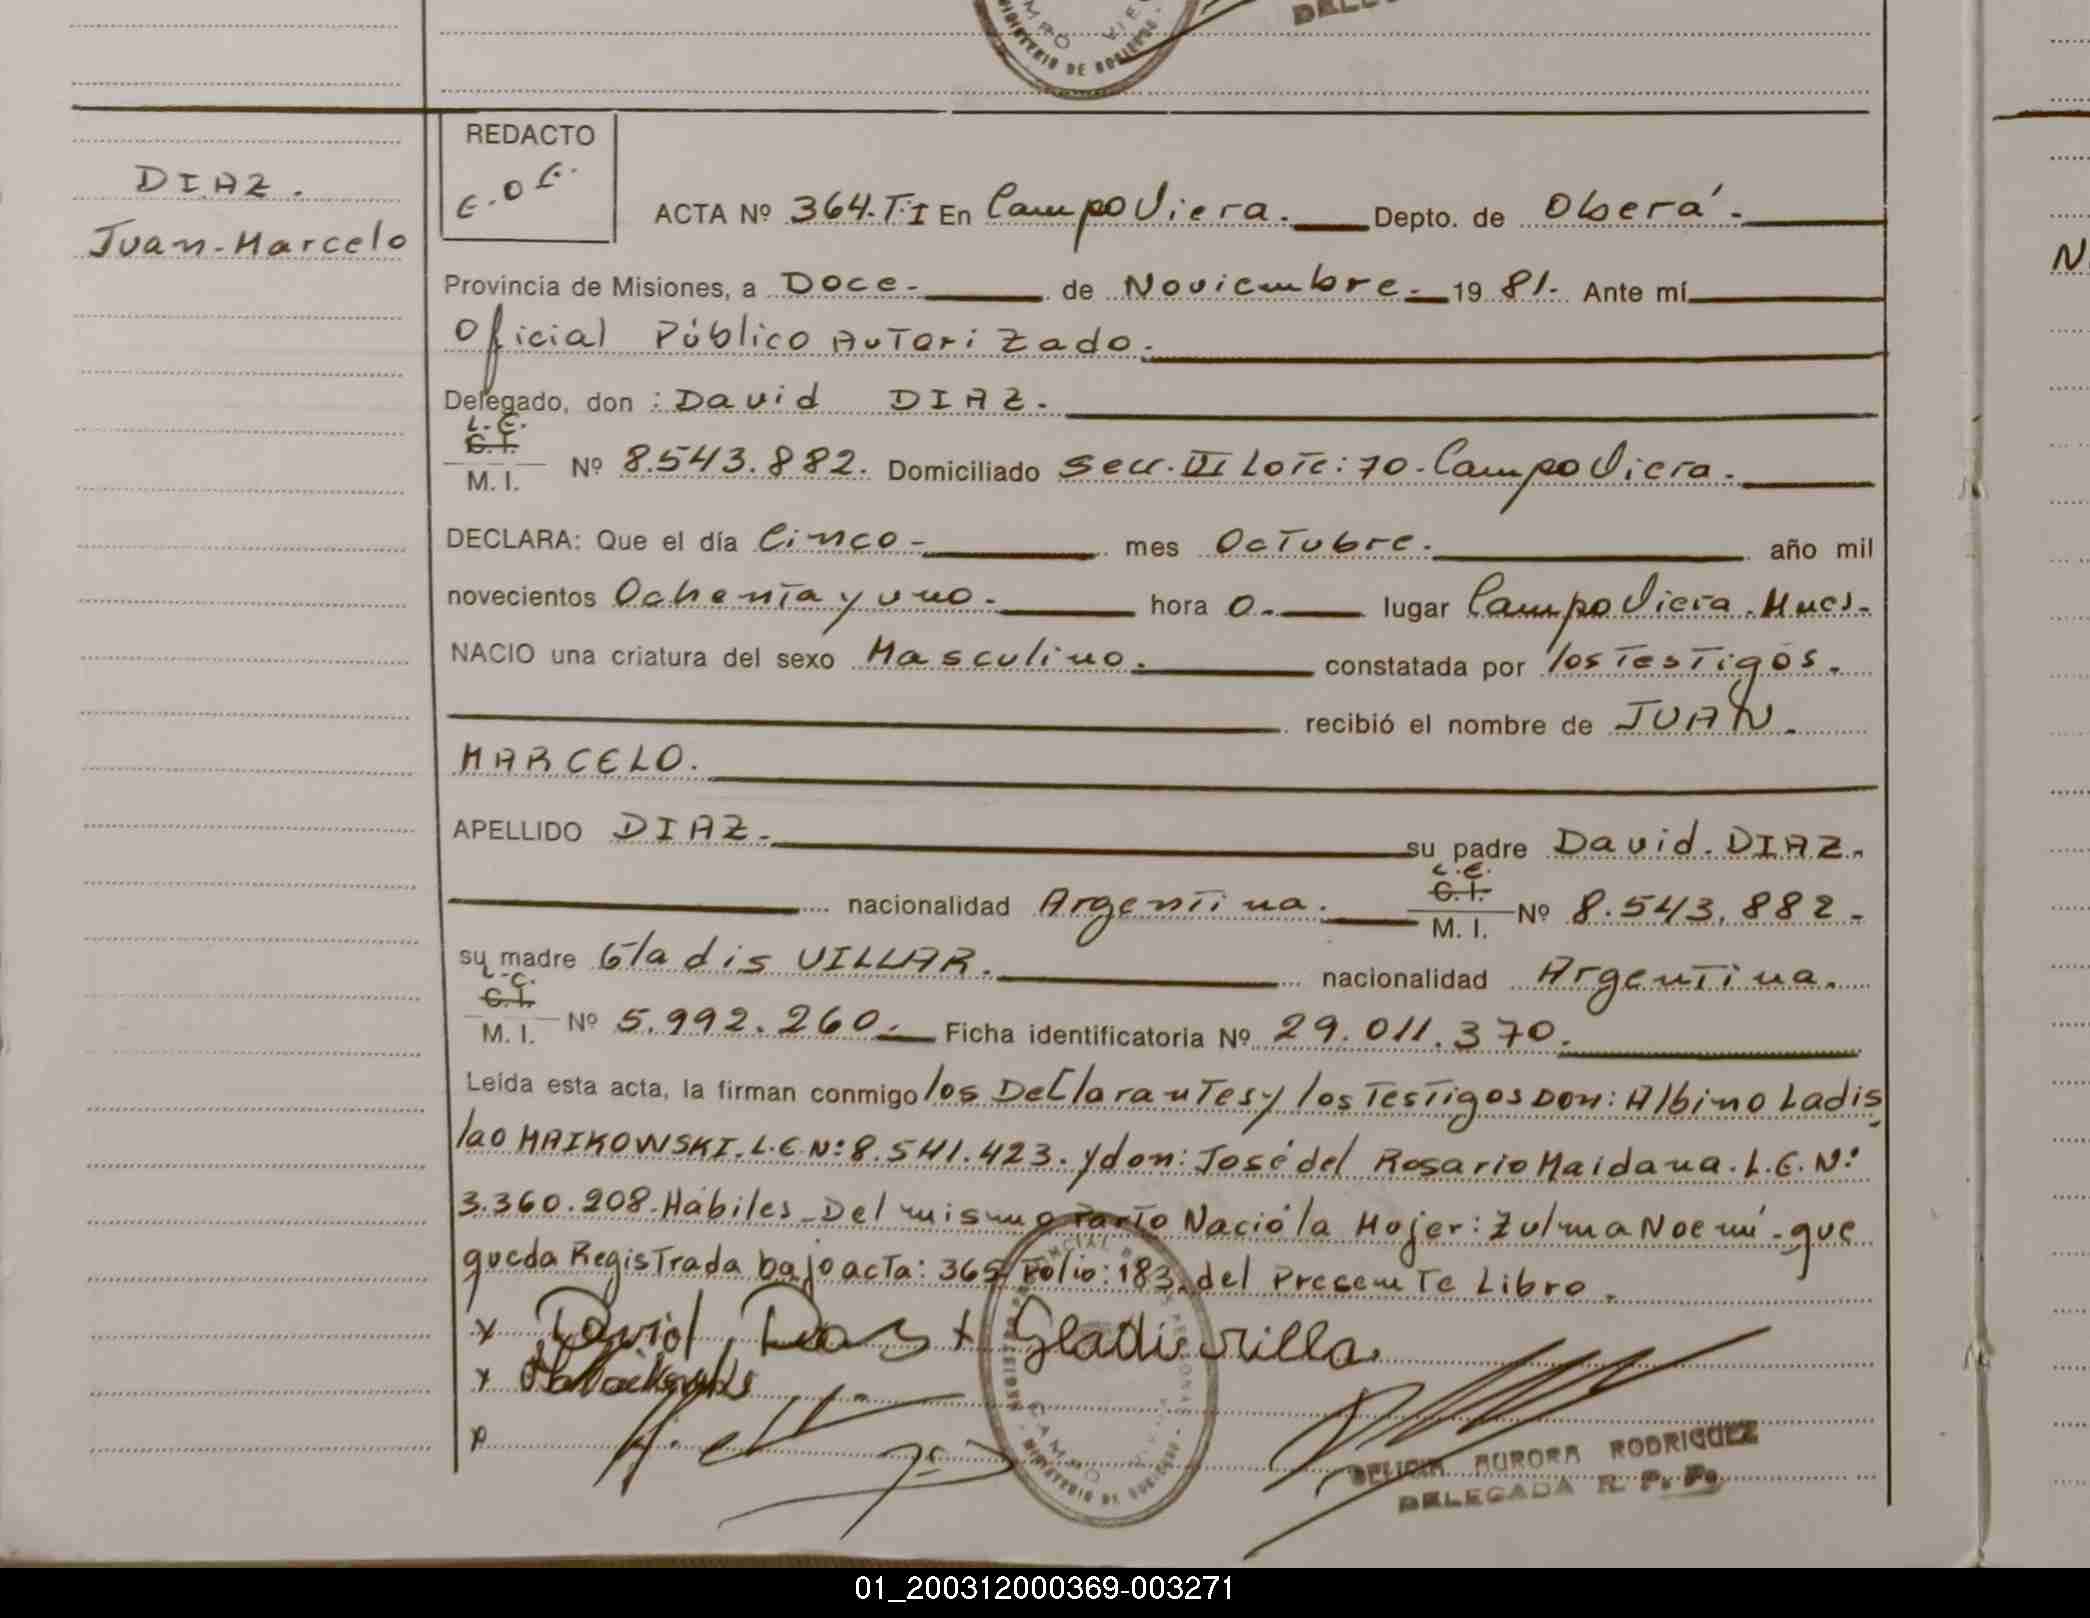 DELE
MINISTERIO DE GOBIERNO
DIAZ.
Juan-Marcelo
REDACTO
E.O.E.
ACTA Nº 364.T.I En Campo Viera. Depto. de Oberá.
Provincia de Misiones, a Doce.- de Noviembre.- 19 81. Ante mí
Oficial Público Autorizado.
Delegado, don : David DIAZ.
L.E.
C.I.
M. I. Nº 8.543.882. Domiciliado Secc. III Lote: 70. Campo Viera.
DECLARA: Que el día Cinco - mes Octubre. año mil
novecientos Ochenta y uno. hora 0.- lugar Campo Viera. Mnes.
NACIO una criatura del sexo Masculino. constatada por los Testigos.
recibió el nombre de JUAN.
MARCELO.
APELLIDO DIAZ. su padre David. DIAZ.
L.E.
C.I.
nacionalidad Argentina. M. I. Nº 8.543.882.
su madre Gladis VILLAR. nacionalidad Argentina.
L.C.
C.I.
M. I. Nº 5.992.260.- Ficha identificatoria Nº 29.011.370.
Leída esta acta, la firman conmigo los Declarantes y los Testigos Don: Albino Ladis
lao MAIKOWSKI. L.E Nº: 8.541.423. y don: José del Rosario Maidana. L.E. Nº:
3.360.208. Hábiles - Del mismo Parto Nació la Mojer: Zulma Noemí - que
queda Registrada bajo acta: 365 Folio: 183. del Presente Libro.
x David Diaz x Gladi villa
x
x
CAMPO VIERA
MINISTERIO DE GOBIERNO
DELICIA AURORA RODRIGUEZ
DELEGADA R. P. P.
N.
01_200312000369-003271